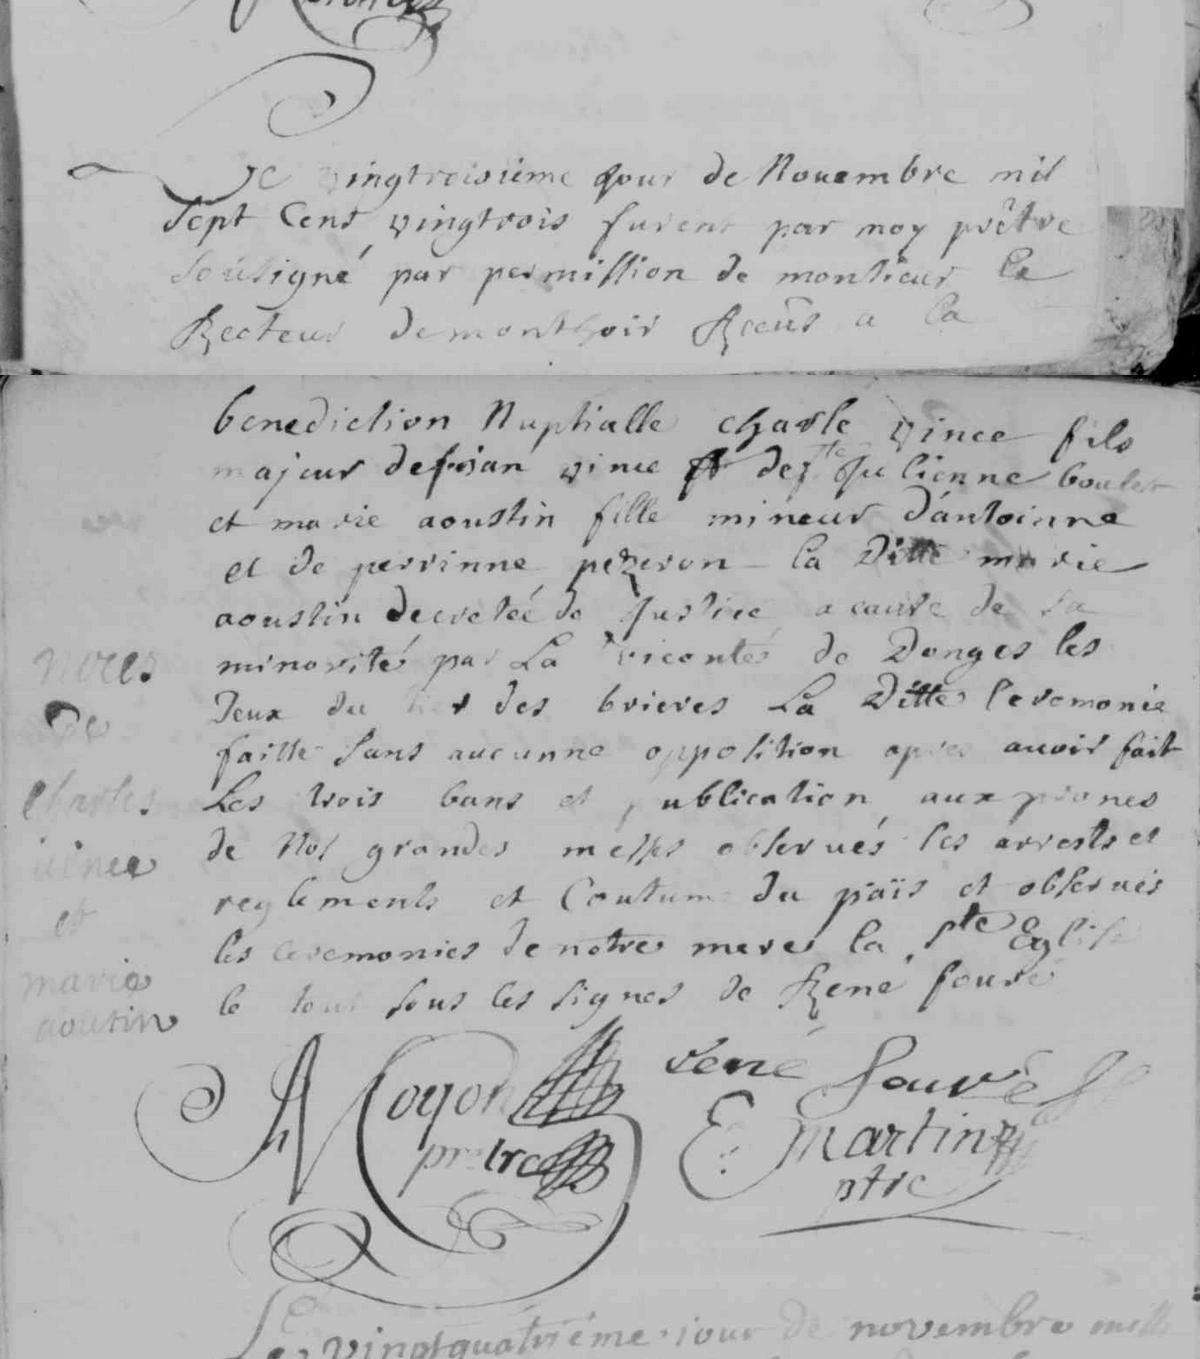 Le vingtroisieme jour de Novembre mil
sept Cent vingtrois furent par moy prêtre
sousigné par permission de monsieur le
Recteur de monthoir Receus a la
benediction Nuptialle charle vince fils
majeur de vince et de Julienne boulet
et marie aoustin fille mineur d'antoinne
et de perrinne pezeron la Ditte marie
aoustin decretée de Justice a cause de sa
minorité par La viconté de Donges les
Jeux du des brieres La Ditte Ceremonie
faitte sans aucunne opposition apres auoir fait
Les trois bans et publication aux prones
de Nos grandes messes obserués les arrests et
reglements et Coutume du païs et obserués
les ceremonies de notre mere la ste Eglise
le tout sous les signes de René fouré
Noces
De
Charles
vince
et
marie
aoutin
Moyon
pretre
rené fouré
E. martin
ptre
Le vingtquatriéme jour de novembre mille